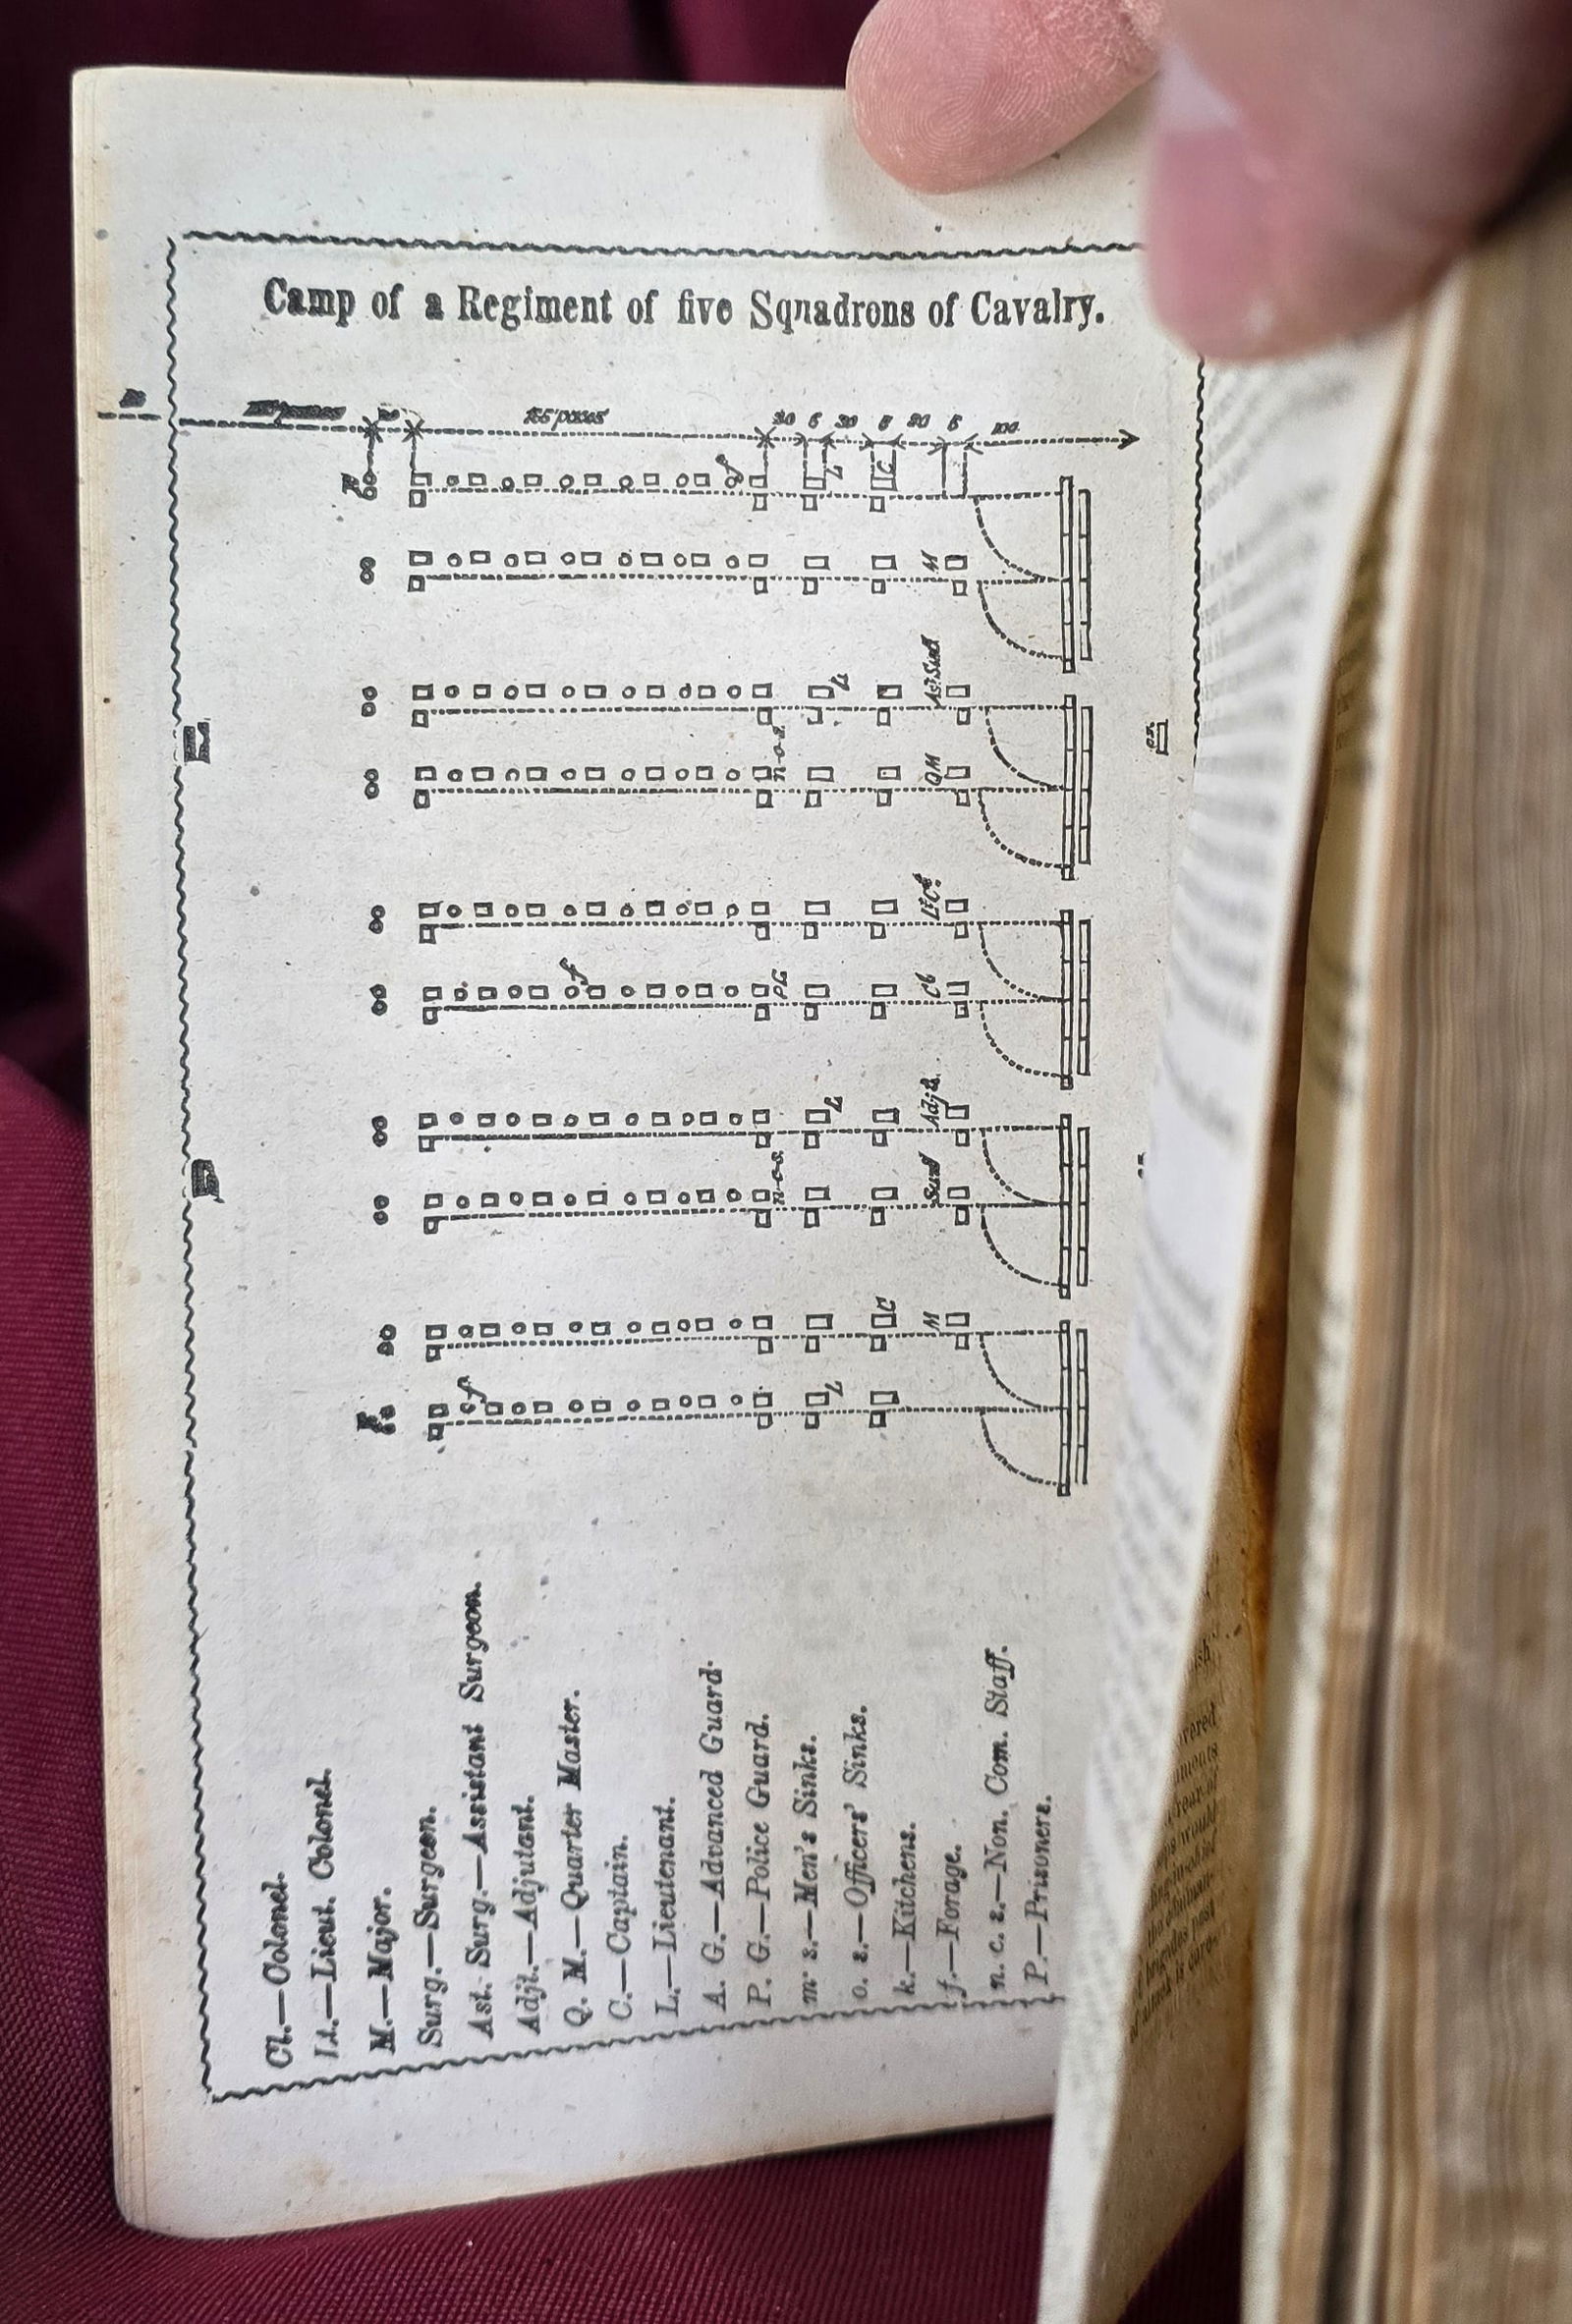 Camp of a Regiment of five Sqnadrons of Cavalry.
155 paces
30 6 30 6 20 5 100
f
L
C
M
Ast Surg
L
n-c-s.
QM
Lt Cl
f
PG
Cl
Adjt.
L
n-c-s.
Surg
C
M
f
L
Cl.—Colonel.
Lt.—Lieut. Colonel.
M.—Major.
Surg.—Surgeon.
Ast. Surg.—Assistant Surgeon.
Adjt.—Adjutant.
Q. M.—Quarter Master.
C.—Captain.
L.—Lieutenant.
A. G.—Advanced Guard.
P. G.—Police Guard.
m. s.—Men's Sinks.
o. s.—Officers' Sinks.
k.—Kitchens.
f.—Forage.
n. c. s.—Non. Com. Staff.
P.—Prisoners.